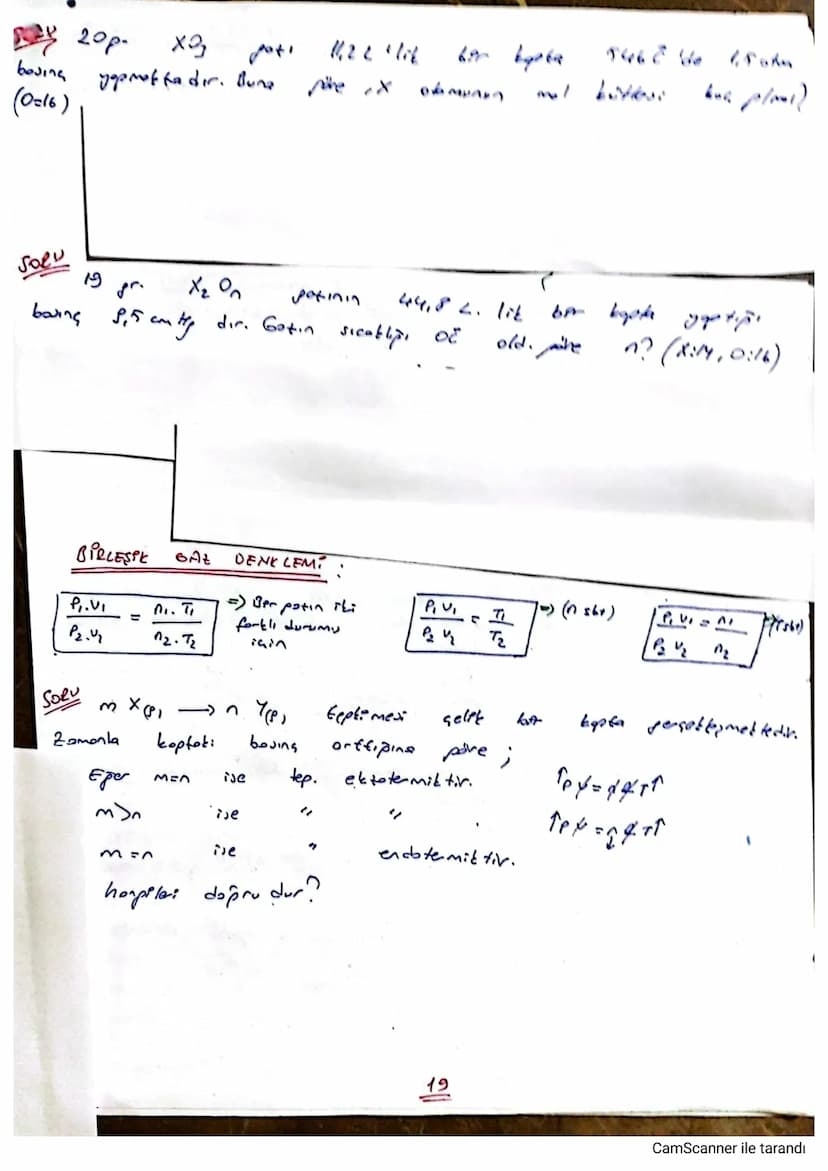 Soru 20g. XO3 gazı 11,2 L'lik bir kapta 546 C 'de 1,5 atm
basınç yapmaktadır. Buna göre, X atomunun mol kütlesi kaç g/mol?
(O=16)
Soru
19 gr. X2On gazının 44,8 L. lik bir kapta yaptığı
basınç 9,5 cm Hg dır. Gazın sıcaklığı 0C old. göre n? (X:14, O:16)
BİRLEŞİK GAZ DENKLEMİ :
P1.V1 / P2.V2 = n1.T1 / n2.T2 => Bir gazın iki farklı durumu için
P1 V1 / P2 V2 = T1 / T2 => (n sbt)
P1 V1 / P2 V2 = n1 / n2 => (T sbt)
Soru m X(g) → n Y(g) tepkimesi çelik bir kapta gerçekleşmektedir.
Zamanla kaptaki basınç arttığına göre ;
Eğer m=n ise tep. ekzotermiktir. ↑PV = nRT↑
m>n ise " " . ↑PV = nRT↑
m=n ise " endotermiktir.
hangileri doğrudur?
19
CamScanner ile tarandı